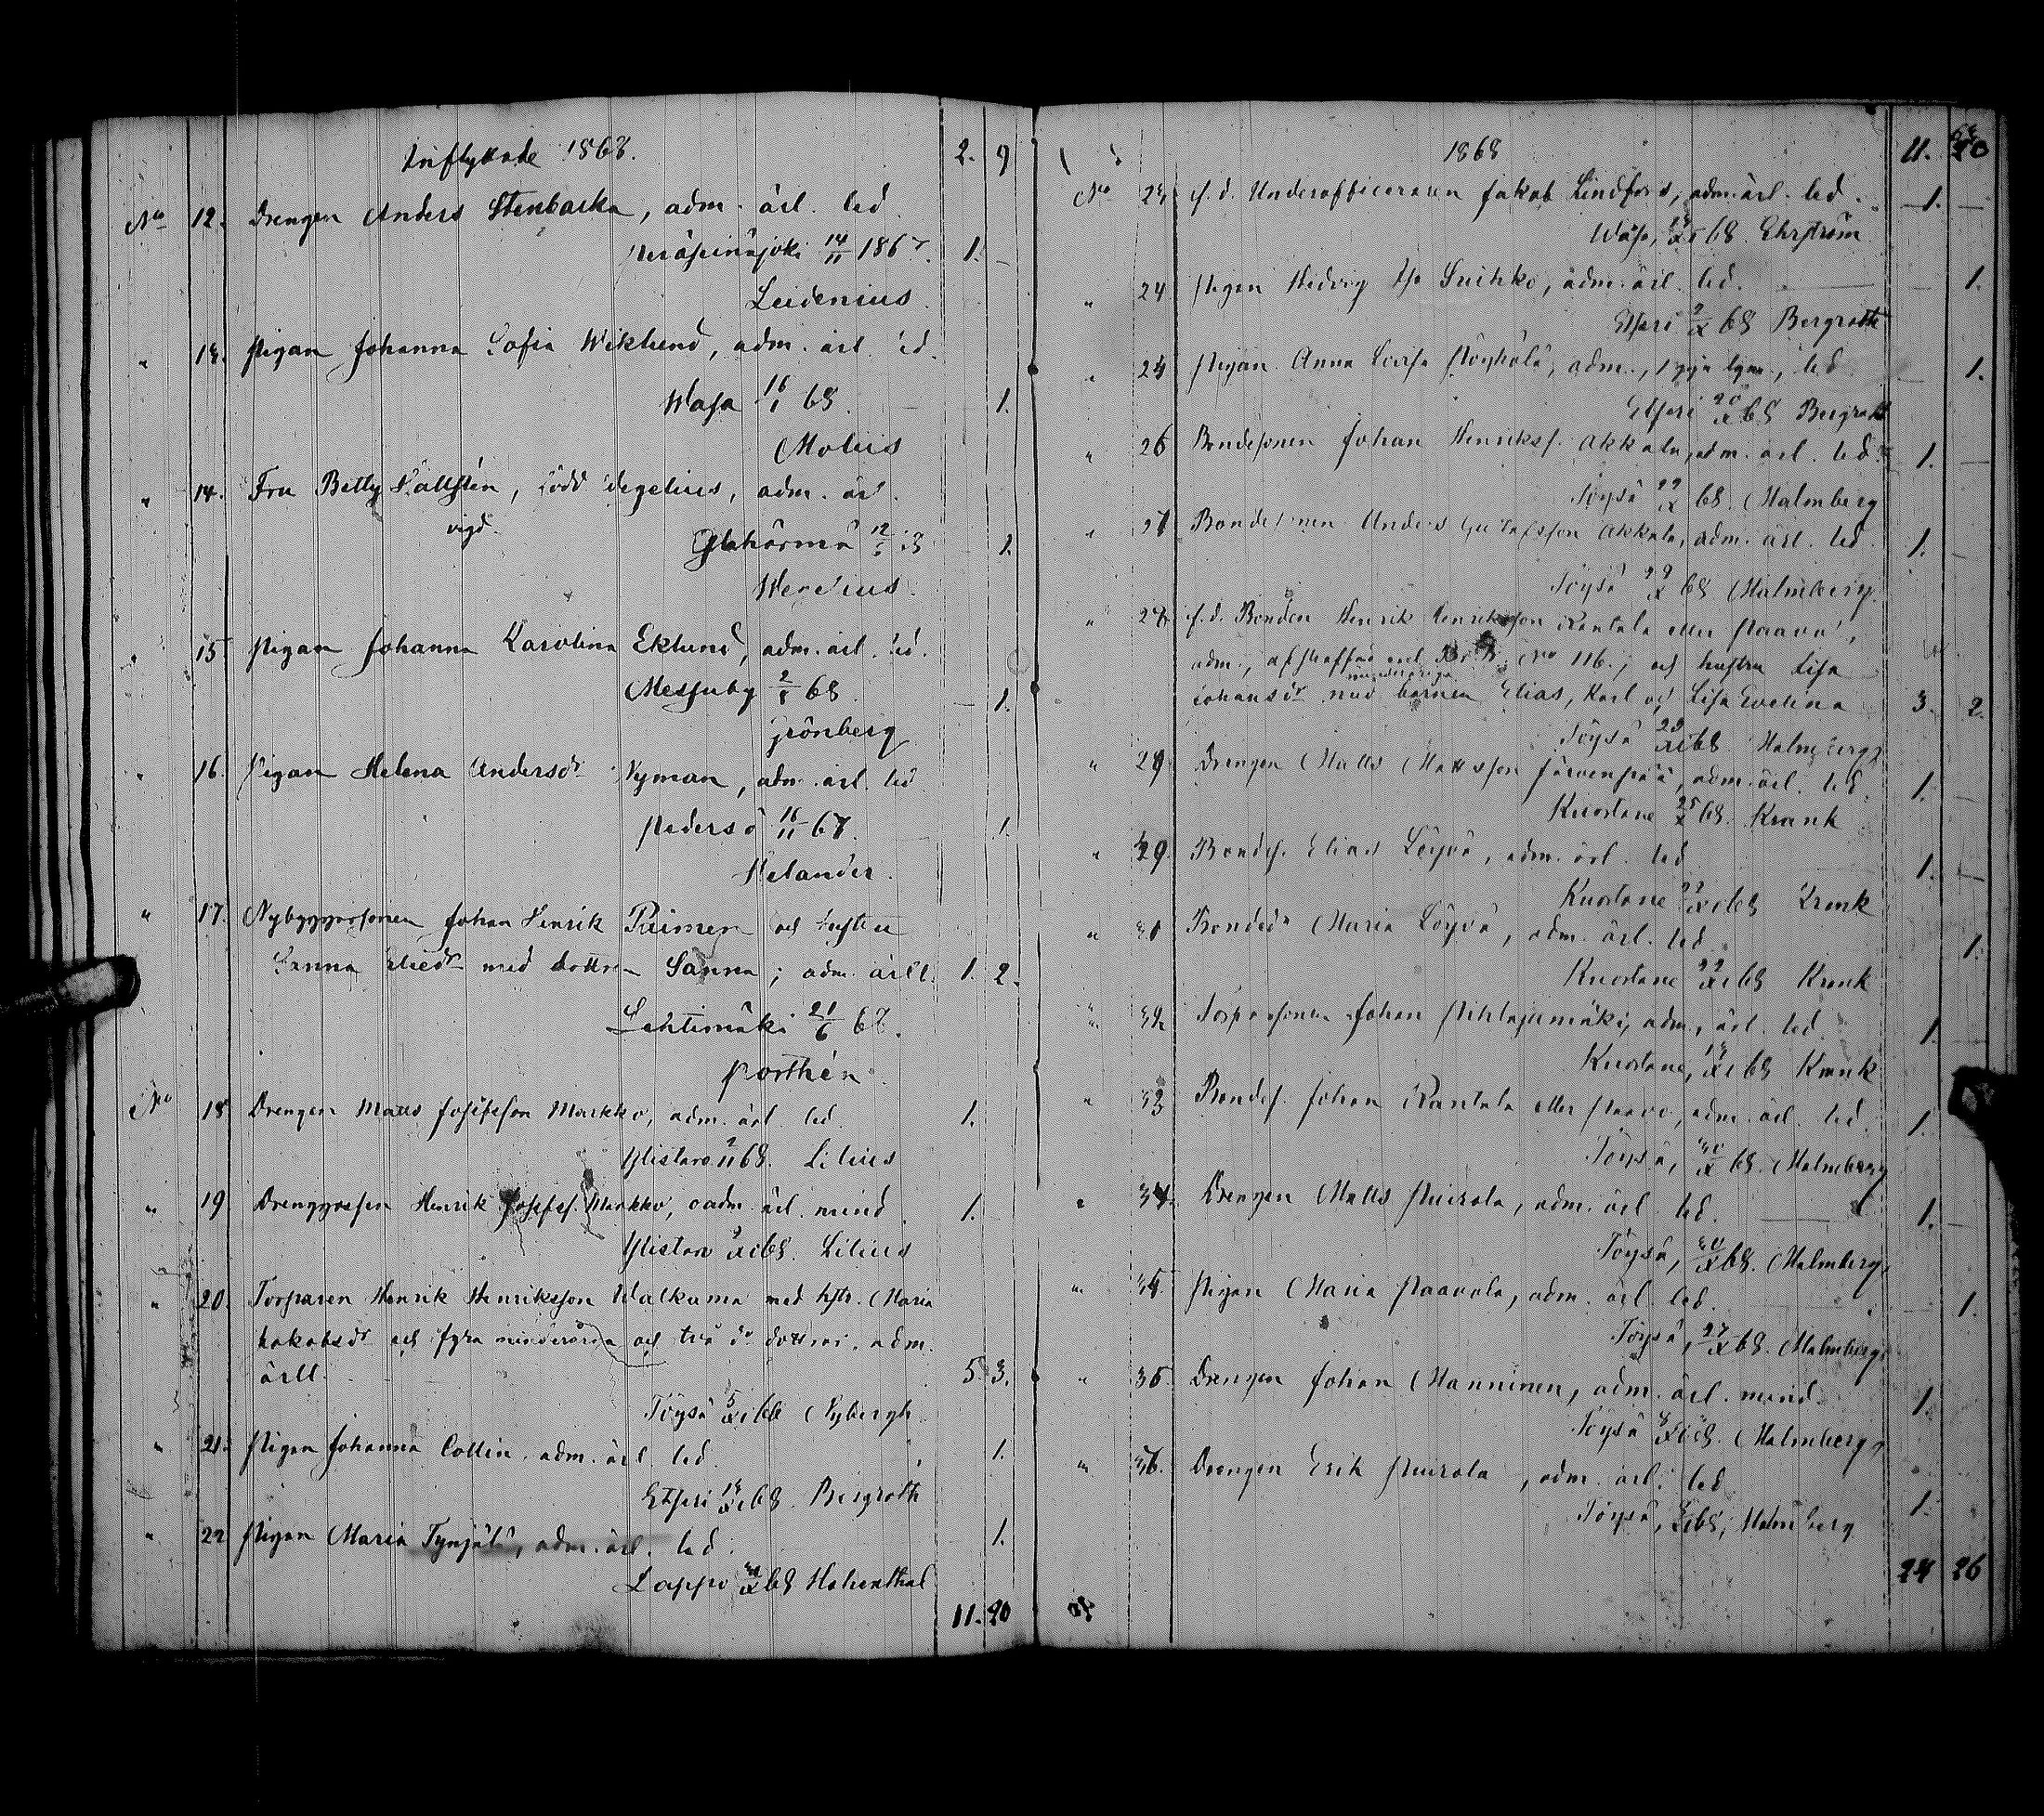 Inflyttade 1868. 2. 9
No 12. Drengen Anders Stenbacka, adm. ärl. led.
Peräseinäjoki 14/11 1867. 1. –
Leidenius.
" 13. Pigan Johanna Sofia Wiklund, adm. ärl. led.
Wasa 16/1 68. 1.
Moliis
" 14. Fru Betty Hällsten, född Idegelius, adm. ärl.
vigd.
Ylihärmä 1.
" 15. Pigan Johanna Karolina Eklund, adm. ärl. led.
Messuby 68. – 1.
Grönberg
" 16. Pigan Helena Andersdr Nyman, adm. ärl. led
Pedersö 16/11 67. 1.
Helander.
" 17. Nybyggaresonen Johan Henrik och hustru
Sanna med dottren Sanna; adm. ärll. 1. 2.
Lehtimäki 21/6 67.
Porthén
No 18 Drengen Matts Josefsson Markko, adm. ärl. led. 1.
Ylistaro 2/11 68. Lilius
" 19 Henrik Josefss. Markko, oadm. ärl. 1.
Ylistaro XI 68. Lilius
" 20. Torparen Henrik Henriksson Walkama med hstr. Maria
Jakobsdr och fyra minderåriga och två do döttrar. adm.
ärll. 5. 3.
Töysä 5/XI 68 Nybergh
" 21. Pigan Johanna Collin. adm. ärl. led. 1.
Etseri XI 68. Bergroth
" 22 Pigan Maria Tynjälä, adm. ärl. led. 1.
Lappo X 68 Hohenthal
11. 20
1868 11. 20
No 23 f.d. Underofficeraren Jakob Lindfors, adm. ärl. led. – 1. –
Wasa, XI 68. Ehrström
" 24 Pigan Hedvig Suihko, adm. ärl. led. 1.
Etseri 2/X 68 Bergroth
" Pigan Anna Lovisa adm., led – 1.
Etseri 20/X 68 Bergroth
" 26 Bondesonen Johan Henrikss. Akkala, adm. ärl. led. 1. –
Töysä 22/X 68. Malmberg
" 27 Bondesonen Anders Akkala, adm. ärl. led. 1. –
Töysä 29/X 68 Malmberg
" 28 f.d. Bonden Henrik Henriksson Rantala eller Paavo,
adm., afstraffad No 116.; och hustru Lisa
minderåriga
Johansdr med barnen Elias, Karl och Lisa Evelina 3. 2.
Töysä XI 68 Malmberg
" 29 Drengen Matts Mattsson Järvenpää, adm. ärl. led. 1. –
Kuortane 25/X 68. Krank
" Bondes. Elias Löyvä, adm. ärl. led 1. –
Kuortane XI 68 Krank
" 31 Bondedr Maria Löyvä, adm. ärl. led 1.
Kuortane 22/XI 68 Krank
" 32 Torparsonen Johan Pihlajamäki, adm., ärl. led. 1.
Kuortane, XI 68 Krank
" 33 Bondes. Johan Rantala eller Paavo, adm. ärl. led. 1.
Töysä, 30/X 68. Malmberg
" 34. Drengen Matts Puirola, adm. ärl led. 1. –
Töysä, 30/X 68. Malmberg
" Pigan Maria Paavola, adm. ärl. led. – 1.
Töysä, 27/X 68. Malmberg
" Drengen Johan Manninen, adm. ärl. 1.
Töysä XI 68. Malmberg
" 36. Drengen Erik Puirola, adm. ärl. led 1.
Töysä, XI 68, Malmberg
24 26